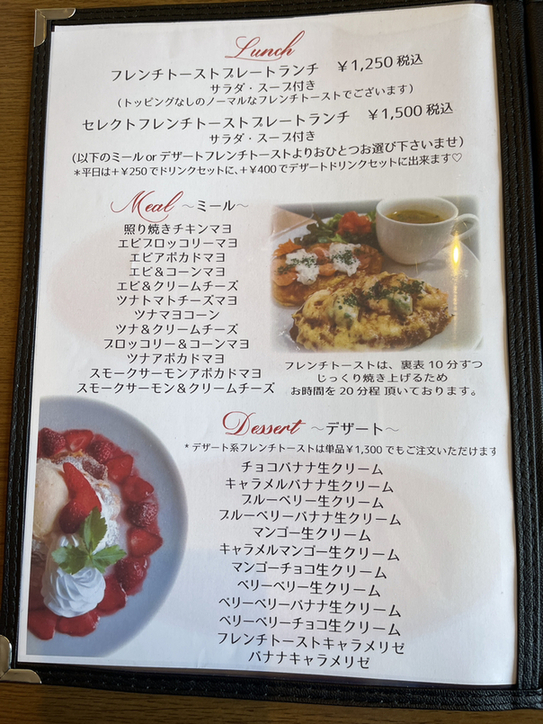 Lunch
フレンチトーストプレートランチ ￥1,250 税込
サラダ・スープ付き
(トッピングなしのノーマルなフレンチトーストでございます)
セレクトフレンチトーストプレートランチ ￥1,500 税込
サラダ・スープ付き
(以下のミール or デザートフレンチトーストよりおひとつお選び下さいませ)
*平日は+¥250でドリンクセットに、+¥400でデザートドリンクセットに出来ます♡
Meal ～ミール～
照り焼きチキンマヨ
エビブロッコリーマヨ
エビアボカドマヨ
エビ&コーンマヨ
エビ&クリームチーズ
ツナトマトチーズマヨ
ツナマヨコーン
ツナ&クリームチーズ
ブロッコリー&コーンマヨ
ツナアボカドマヨ
スモークサーモンアボカドマヨ
スモークサーモン&クリームチーズ
フレンチトーストは、裏表 10 分ずつ
じっくり焼き上げるため
お時間を 20 分程 頂いております。
Dessert ～デザート～
*デザート系フレンチトーストは単品¥1,300 でもご注文いただけます
チョコバナナ生クリーム
キャラメルバナナ生クリーム
ブルーベリー生クリーム
ブルーベリーバナナ生クリーム
マンゴー生クリーム
キャラメルマンゴー生クリーム
マンゴーチョコ生クリーム
ベリーベリー生クリーム
ベリーベリーバナナ生クリーム
ベリーベリーチョコ生クリーム
フレンチトーストキャラメリゼ
バナナキャラメリゼ